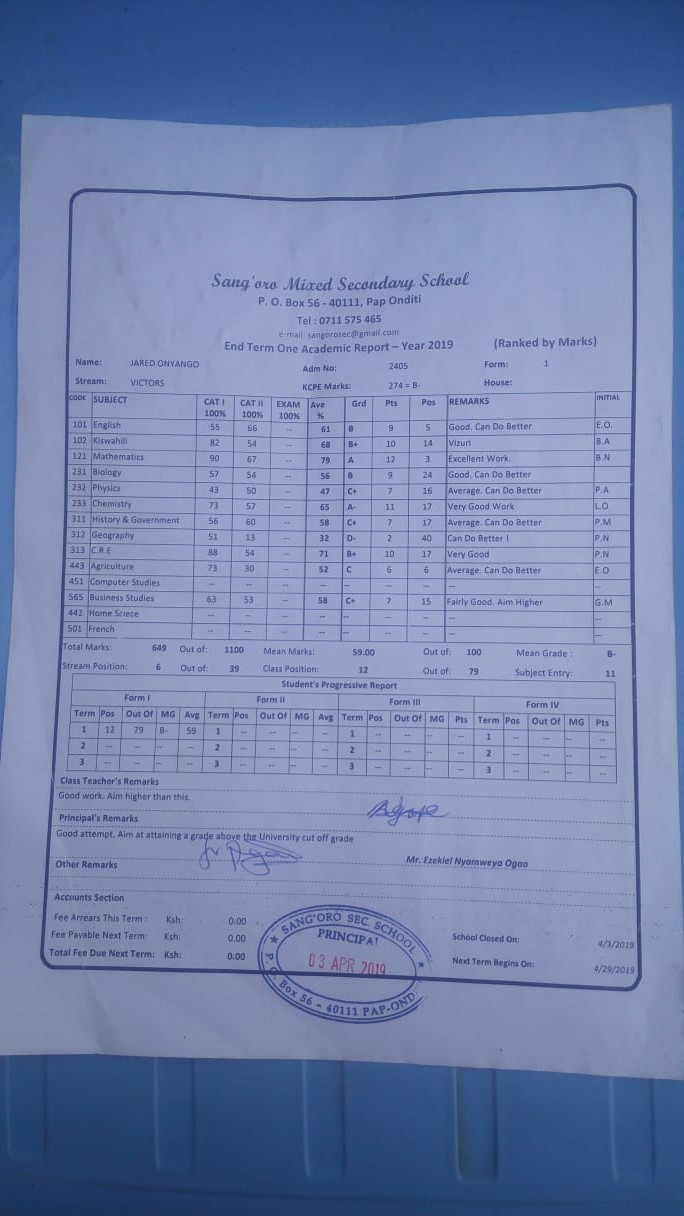 Sang'oro Mixed Secondary School
P. O. Box 56 - 40111, Pap Onditi
Tel : 0711 575 465
e-mail: sangorosec@gmail.com
End Term One Academic Report – Year 2019 (Ranked by Marks)
Name: JARED ONYANGO Adm No: 2405 Form: 1
Stream: VICTORS KCPE Marks: 274 = B- House:
CODE SUBJECT CAT I 100% CAT II 100% EXAM 100% Ave % Grd Pts Pos REMARKS INITIAL
101 English 55 66 -- 61 B 9 5 Good. Can Do Better E.O.
102 Kiswahili 82 54 -- 68 B+ 10 14 Vizuri B.A
121 Mathematics 90 67 -- 79 A 12 3 Excellent Work. B.N
231 Biology 57 54 -- 56 B 9 24 Good. Can Do Better
232 Physics 43 50 -- 47 C+ 7 16 Average. Can Do Better P.A
233 Chemistry 73 57 -- 65 A- 11 17 Very Good Work L.O
311 History & Government 56 60 -- 58 C+ 7 17 Average. Can Do Better P.M
312 Geography 51 13 -- 32 D- 2 40 Can Do Better ! P.N
313 C.R.E 88 54 -- 71 B+ 10 17 Very Good P.N
443 Agriculture 73 30 -- 52 C 6 6 Average. Can Do Better E.O
451 Computer Studies -- -- -- -- -- -- -- -- --
565 Business Studies 63 53 -- 58 C+ 7 15 Fairly Good. Aim Higher G.M
442 Home Sciece -- -- -- -- -- -- -- -- --
501 French -- -- -- -- -- -- -- -- --
Total Marks: 649 Out of: 1100 Mean Marks: 59.00 Out of: 100 Mean Grade : B-
Stream Position: 6 Out of: 39 Class Position: 12 Out of: 79 Subject Entry: 11
Student's Progressive Report
Form I Form II Form III Form IV
Term Pos Out Of MG Avg Term Pos Out Of MG Avg Term Pos Out Of MG Pts Term Pos Out Of MG Pts
1 12 79 B- 59 1 -- -- -- -- 1 -- -- -- -- 1 -- -- -- --
2 -- -- -- -- 2 -- -- -- -- 2 -- -- -- -- 2 -- -- -- --
3 -- -- -- -- 3 -- -- -- -- 3 -- -- -- -- 3 -- -- -- --
Class Teacher's Remarks
Good work. Aim higher than this.
Principal's Remarks
Good attempt, Aim at attaining a grade above the University cut off grade
Mr. Ezekiel Nyamweya Ogao
Other Remarks
Accounts Section
Fee Arrears This Term : Ksh: 0.00
Fee Payable Next Term: Ksh: 0.00
Total Fee Due Next Term: Ksh: 0.00
School Closed On: 4/3/2019
Next Term Begins On: 4/29/2019
★ SANG'ORO SEC. SCHOOL ★
PRINCIPAL
03 APR 2019
P. O. Box 56 - 40111 PAP-OND.